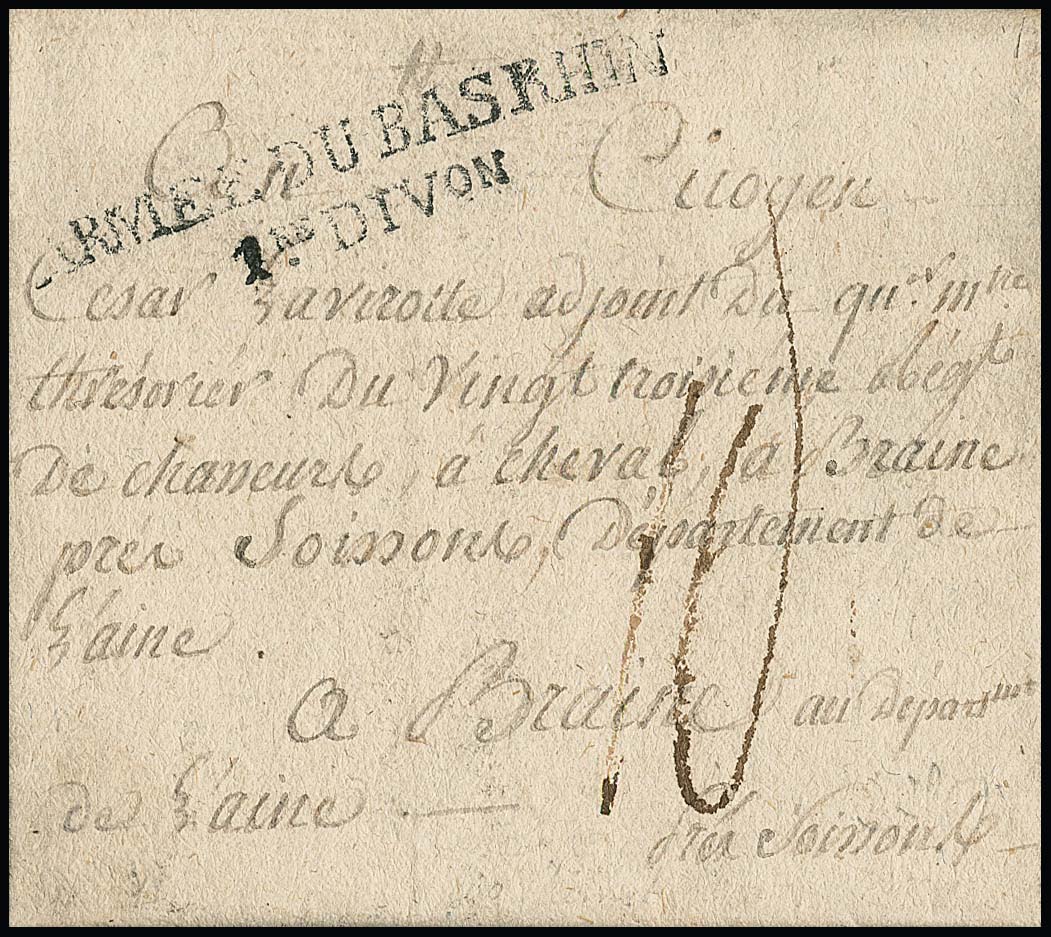 ARMÉE DU BAS RHIN
1RE DIVON
Citoyen
Cesar Lavirotte adjoint Du qu.er m.tre
thrésorier Du Vingt troisieme Régt
De chasseurs, à cheval, à Braine
près Soissons, Département de
L'aine
a Braine au Départmt
de L'aine
près Soissons
10